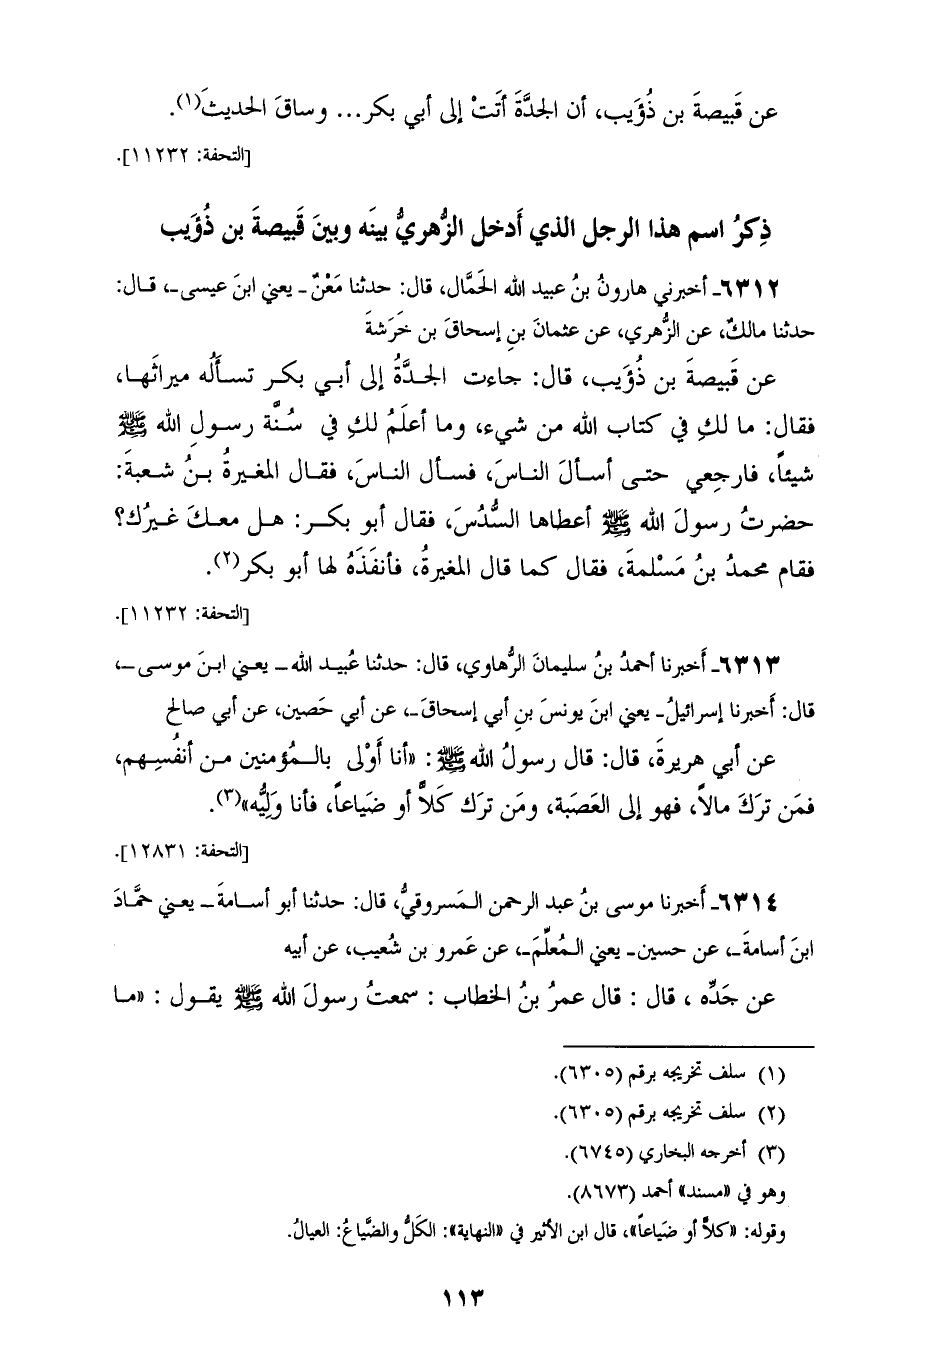 عن قَبيصةَ بن ذُؤَيب، أن الجدَّةَ أتَتْ إلى أبي بكر... وساقَ الحديثَ(١).
[التحفة: ١١٢٣٢].
ذِكرُ اسم هذا الرجل الذي أَدخل الزُّهريُّ بينَه وبينَ قَبيصةَ بن ذُؤَيب
٦٣١٢ـ أخبرني هارونُ بنُ عبيد الله الحَمَّال، قال: حدثنا مَعْنٌ ـ يعني ابنَ عيسى ـ، قـال:
حدثنا مالكٌ، عن الزُّهري، عن عثمانَ بنِ إسحاقَ بن خَرَشةَ
عن قَبيصةَ بن ذُؤَيب، قال: جاءت الجدَّةُ إلى أبـي بكـر تسـأَلُه ميراثَهـا،
فقال: ما لكِ في كتاب الله من شيء، وما أعلَمُ لكِ في سُـنَّة رسـولِ الله ﷺ
شيئاً، فارجِعي حتـى أسـألَ النـاسَ، فسـأل النـاسَ، فقـال المغيرةُ بـنُ شـعبةَ:
حضـرتُ رسولَ الله ﷺ أعطاها السُّدُسَ، فقال أبو بكـر: هـل معـكَ غـيرُك؟
فقام محمدُ بنُ مَسْلمةَ، فقال كما قال المغيرةُ، فأنفَذَهُ لها أبو بكر(٢).
[التحفة: ١١٢٣٢].
٦٣١٣ـ أَخبرنا أحمدُ بنُ سليمانَ الرُّهاوي، قال: حدثنا عُبيـد الله ـ يعـني ابـنَ موسـى ـ،
قال: أَخبرنا إسرائيلُ ـ يعني ابنَ يونسَ بنِ أبي إسحاقَ ـ، عن أبي حَصين، عن أبي صالح
عن أبي هريرةَ، قال: قال رسولُ الله ﷺ: «أنا أَوْلى بالـمُؤمنين مـن أنفُسِـهم،
فمَن تركَ مالاً، فهو إلى العَصَبة، ومَن تركَ كَلاًّ أو ضَياعاً، فأنا وَلِيُّه»(٣).
[التحفة: ١٢٨٣١].
٦٣١٤ـ أَخبرنا موسى بنُ عبد الرحمن الـمَسروقيُّ، قال: حدثنا أبو أسـامةَ ـ يعـني حمَّـادَ
ابنَ أسامةَ ـ، عن حسين ـ يعني الـمُعلِّمَ ـ، عن عَمرو بن شُعيب، عن أبيه
عن جَدِّه ، قال : قال عمرُ بنُ الخطاب : سمعتُ رسولَ الله ﷺ يقـول : «مـا
(١) سلف تخريجه برقم (٦٣٠٥).
(٢) سلف تخريجه برقم (٦٣٠٥).
(٣) أخرجه البخاري (٦٧٤٥).
وهو في «مسند» أحمد (٨٦٧٣).
وقوله: «كلاًّ أو ضَياعاً»، قال ابن الأثير في «النهاية»: الكَلُّ والضَّياعُ: العيالُ.
١١٣